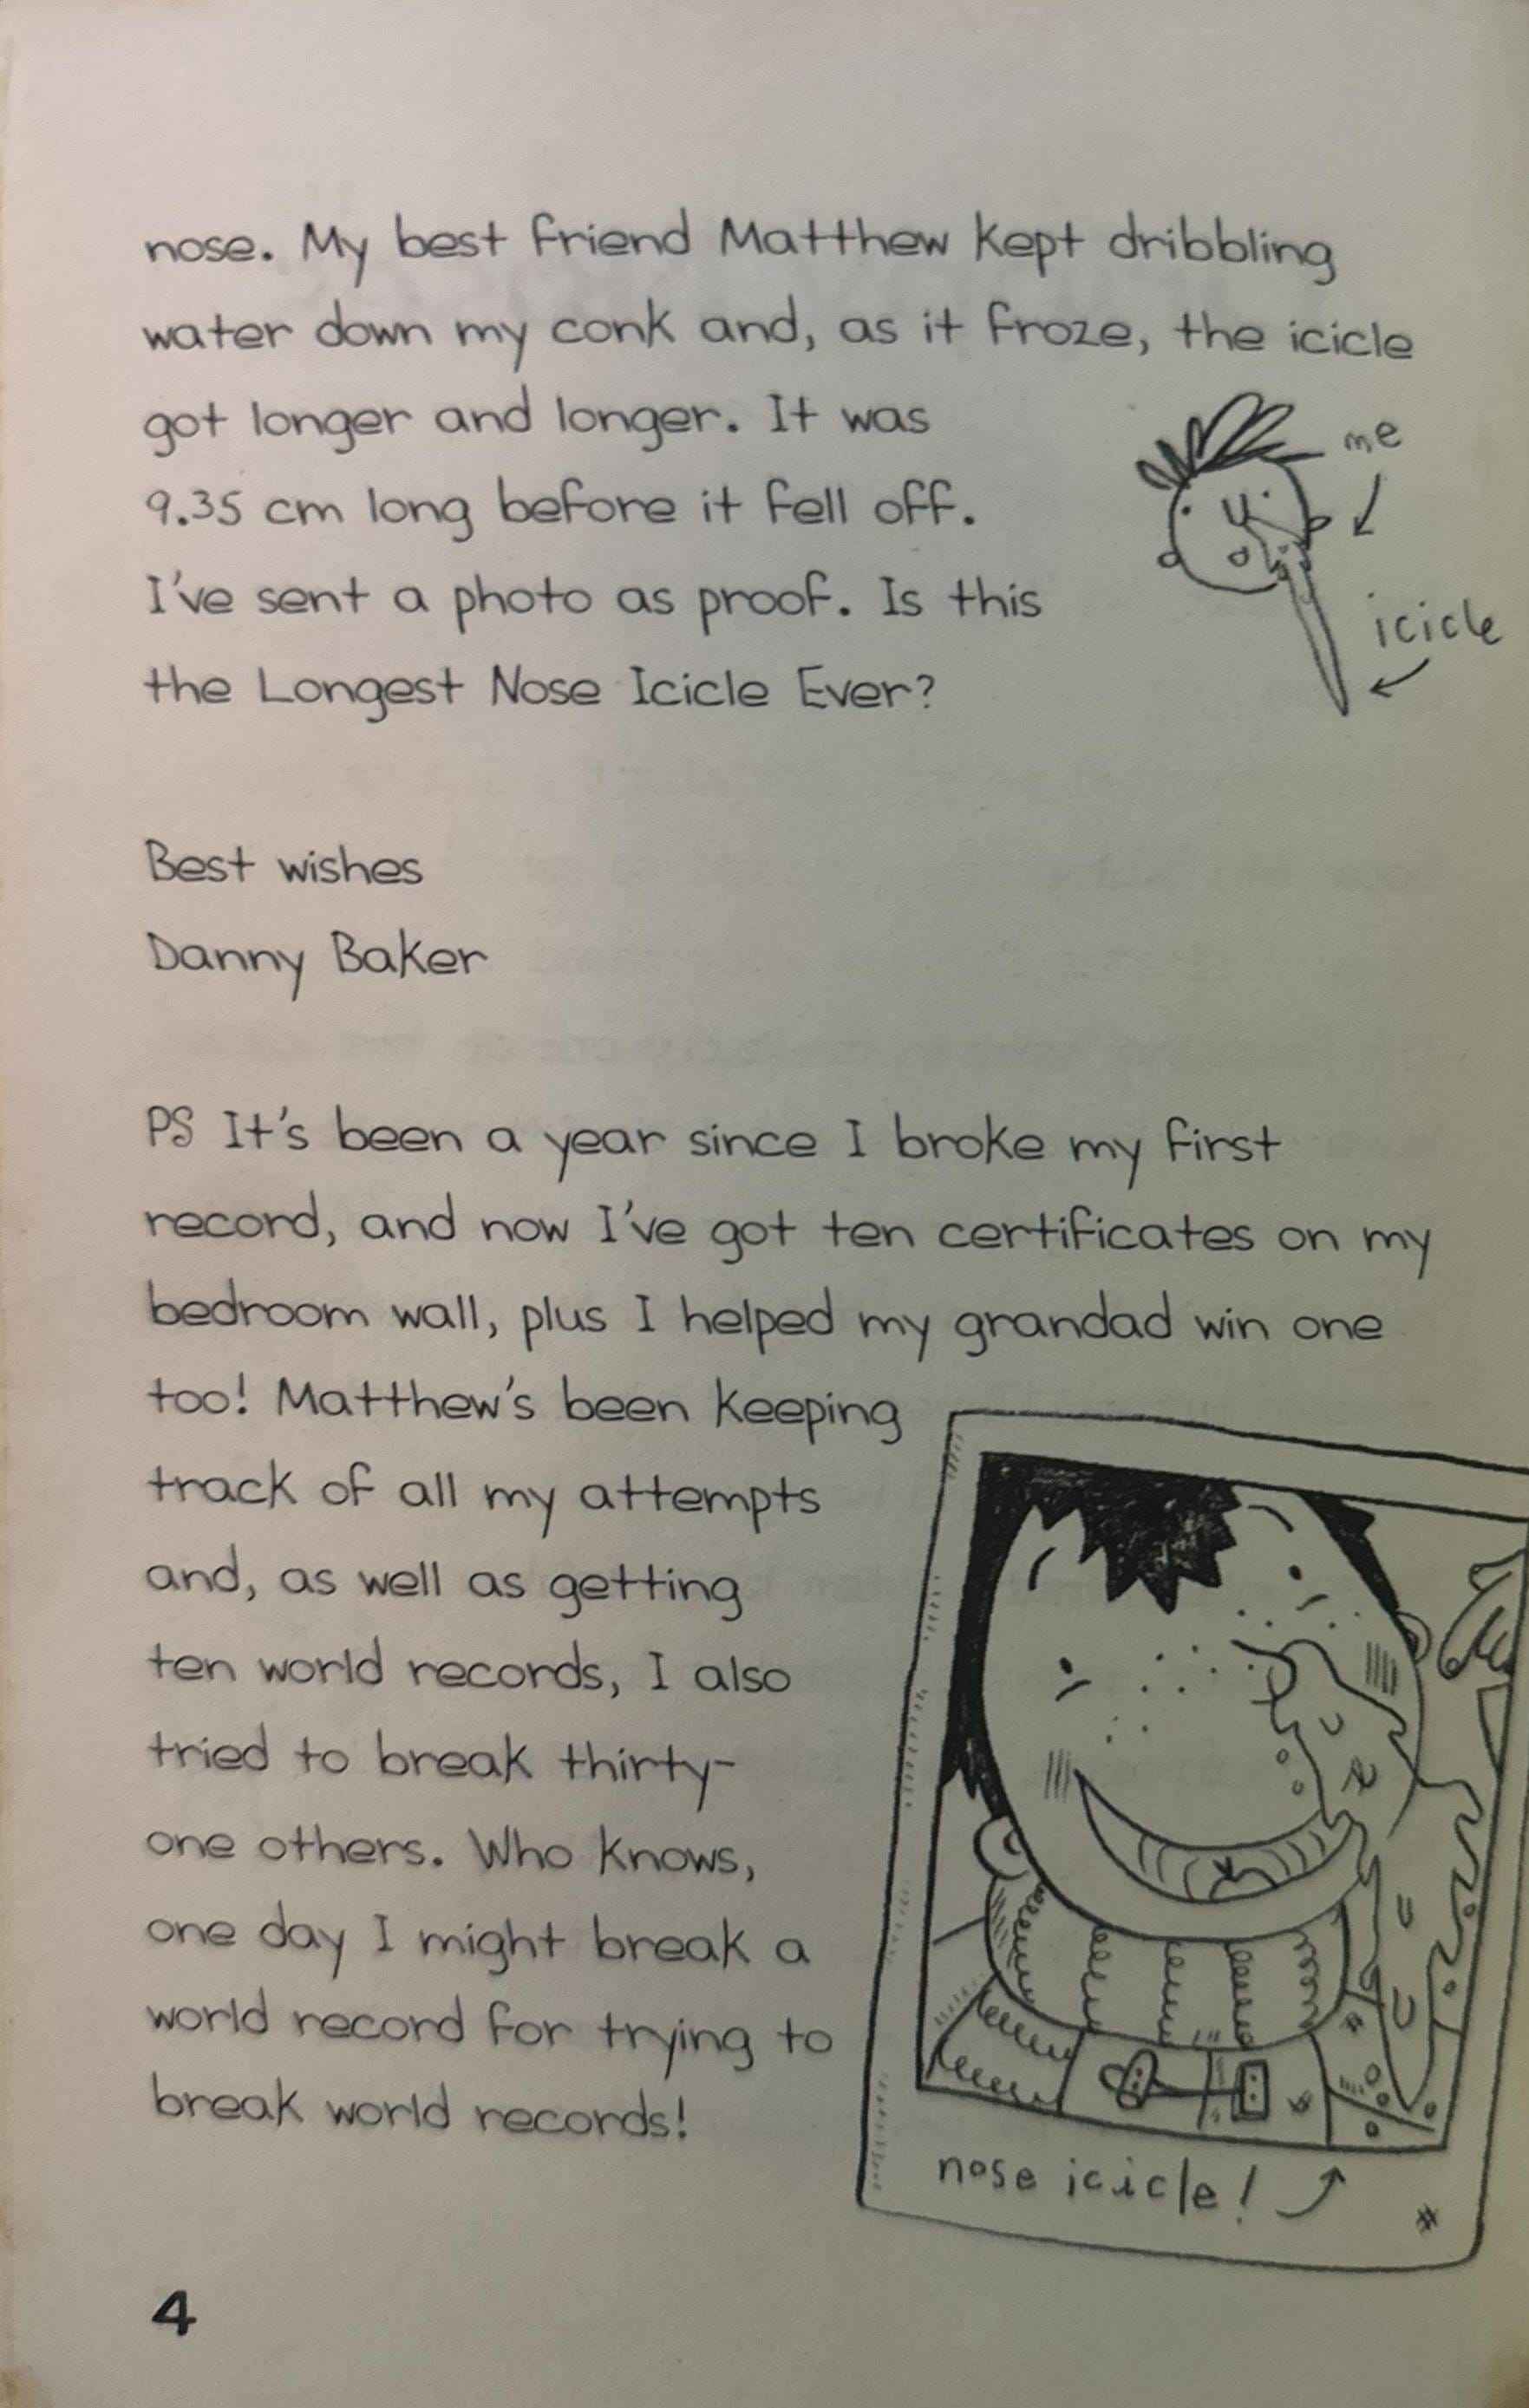 nose. My best friend Matthew kept dribbling
water down my conk and, as it froze, the icicle
got longer and longer. It was
9.35 cm long before it fell off.
I've sent a photo as proof. Is this
the Longest Nose Icicle Ever?
me
icicle
Best wishes
Danny Baker
PS It's been a year since I broke my first
record, and now I've got ten certificates on my
bedroom wall, plus I helped my grandad win one
too! Matthew's been keeping
track of all my attempts
and, as well as getting
ten world records, I also
tried to break thirty-
one others. Who knows,
one day I might break a
world record for trying to
break world records!
nose icicle!
4